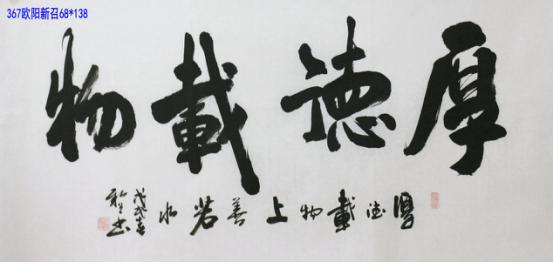 367欧阳新召68*138
厚德載物
厚德載物上善若水
戊戌春